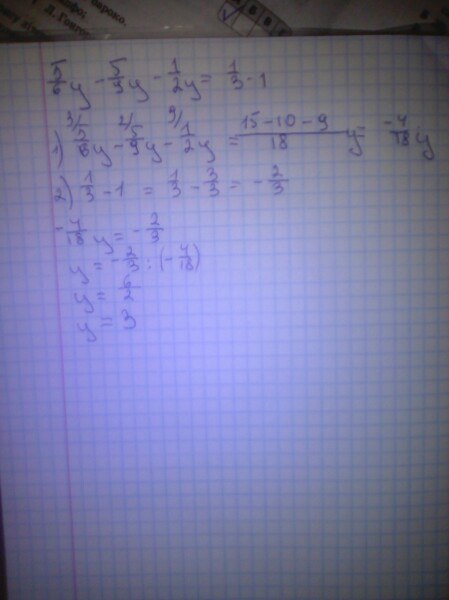 бароко.
Л. Гонго
В Б В
5/6 y - 5/9 y - 1/2 y = 1/3 - 1
1) 3/ 5/6 y - 2/ 5/9 y - 9/ 1/2 y = (15-10-9)/18 y = -4/18 y
2) 1/3 - 1 = 1/3 - 3/3 = - 2/3
- 4/18 y = - 2/3
y = - 2/3 : (- 4/18)
y = 6/2
y = 3